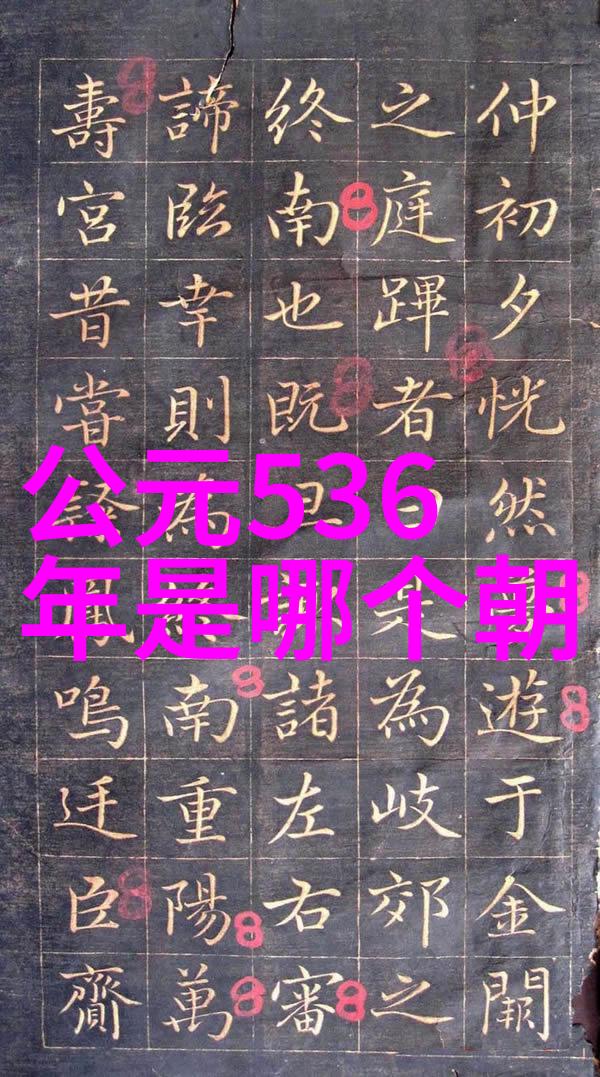 公元536
年是哪个朝
仲初夕恍然夢遊于金闕
之庭蹕者曰是為岐郊之
終南也既旦諸左右審
諦臨幸則為終南重陽萬
壽宮昔嘗鳳鳴廷臣齎